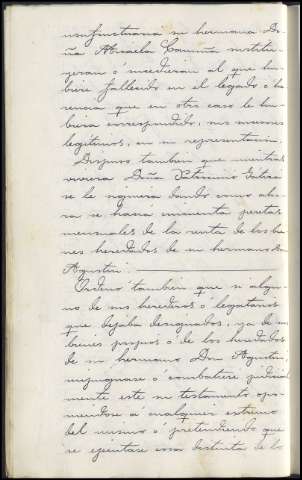 usufructuaria su hermana Do-
ña Micaela
yeran ó sucedieran al que hu-
biere fallecido en el legado ó he-
rencia que en otro caso le hu-
biera correspondido, sus nuevos
legítimos, en su representación.
Dispuso tambien que mientras
viviera Doña Patrocinio
se le siguiera dando como aho-
ra se hacia cincuenta pesetas
mensuales de la renta de los bie-
nes heredados de su hermano Don
Agustin.
Ordenó tambien que si algu-
no de sus herederos ó legatarios
que dejaba designados, ya de sus
bienes propios ó de los heredados
de su hermano Don Agustin,
impugnase ó combatiese judicial-
mente este su testamento opo-
niendose á cualquier extremo
del mismo ó pretendiendo que
se ejecutase cosa distinta de lo